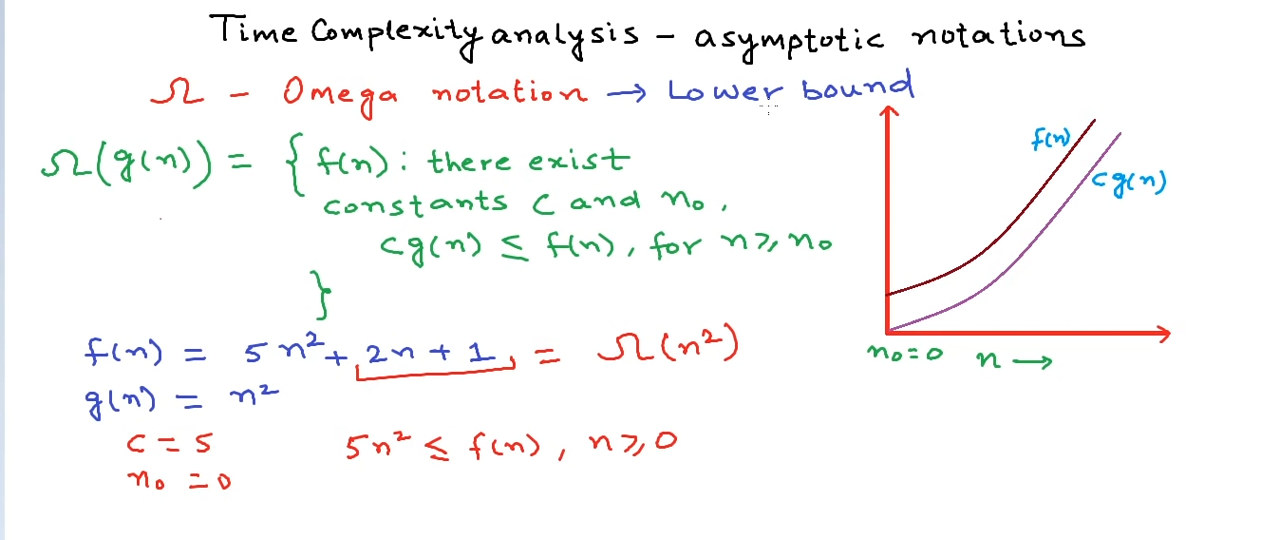 Time Complexity analysis - asymptotic notations
Ω - Omega notation → Lower bound
Ω(g(n)) = { f(n) : there exist
constants c and n₀,
cg(n) ≤ f(n), for n ≥ n₀
}
f(n) = 5n² + 2n + 1, = Ω(n²)
g(n) = n²
c = 5 5n² ≤ f(n), n ≥ 0
n₀ = 0
f(n)
cg(n)
n₀=0 n →